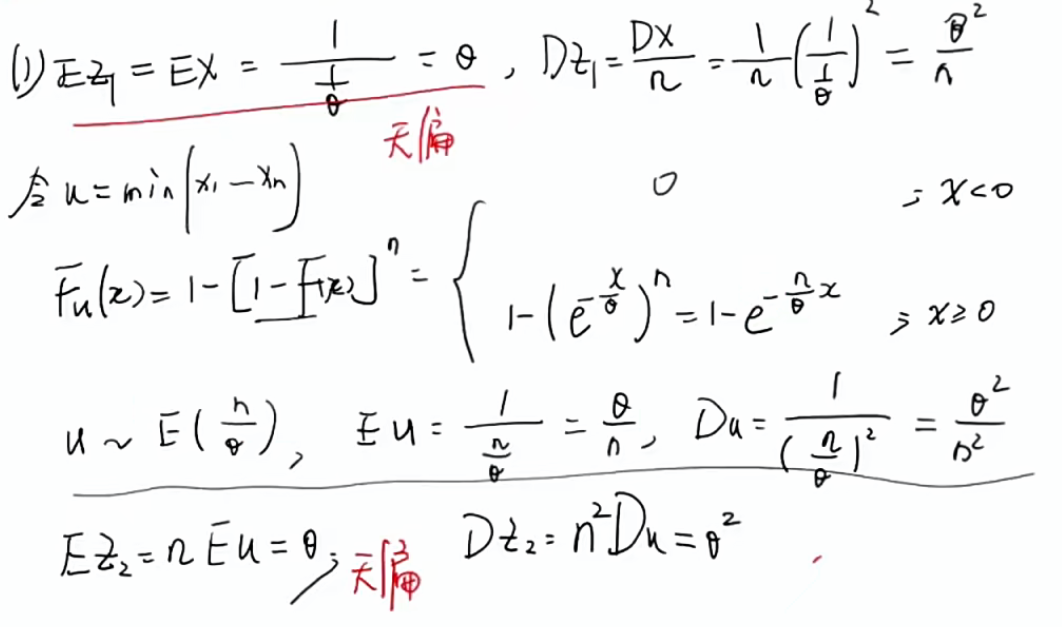 (1) EZ₁ = EX = 1/(1/θ) = θ , DZ₁ = DX/n = 1/n (1/(1/θ))² = θ²/n
无偏
令 u = min(x₁ - xₙ)
Fu(x) = 1-[1-F(x)]ⁿ = { 0 ; x<0
1-(e^(-x/θ))ⁿ = 1-e^(-(n/θ)x) ; x≥0
u ~ E(n/θ), Eu = 1/(n/θ) = θ/n, Du = 1/(n/θ)² = θ²/n²
EZ₂ = nEu = θ, 无偏 DZ₂ = n²Du = θ²